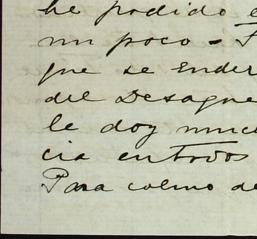 he podido e
un poco - F
que se Ender
del Desague
le doy much
cia en todos
Para colmo de